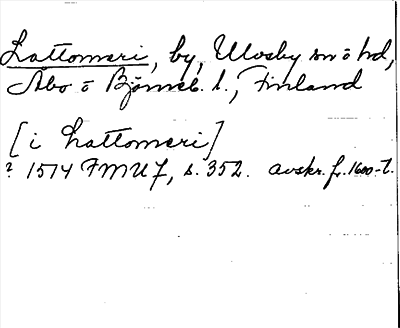 Lattomeri, by, Ulvsby sn o hd,
Åbo o Björneb. l., Finland
[i Lattomeri]
? 1514 FMU 7, s. 352. avskr. fr. 1600-t.